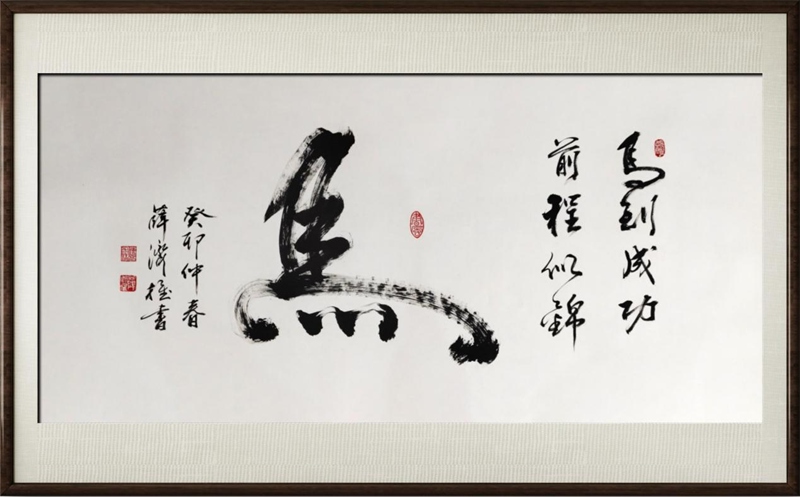 馬到成功
前程似錦
馬
癸卯仲春
薛济權書